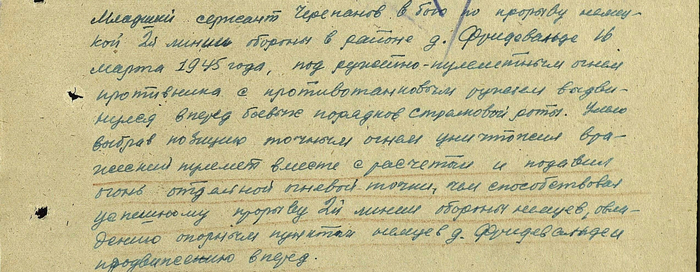 Младший сержант Черепанов в бою по прорыву немец-
кой 2й линии обороны в районе д. Фридевальде 16
марта 1945 года, под ружейно-пулеметным огнем
противника с противотанковым ружьем выдви-
нулся вперед боевых порядков стрелковой роты. Умело
выбрав позицию точным огнем уничтожил вра-
жеский пулемет вместе с расчетом и подавил
огонь отдельной огневой точки, чем способствовал
успешному прорыву 2й линии обороны немцев, овла-
дению опорным пунктом немцев д. Фридевальде и
продвижению вперед.